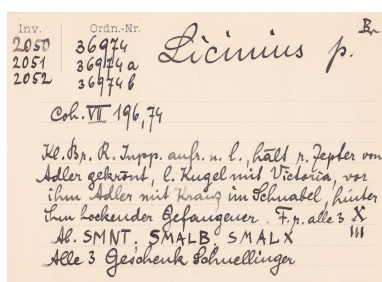 Inv. Ordn.-Nr. Br
2050 36974 Licinius p.
2051 36974a
2052 36974b
Coh. VII 196,74
Kl. Br. R. Jupp. aufr. n. l., hält r. Zepter von
Adler gekrönt, l. Kugel mit Victoria, vor
ihm Adler mit Kranz im Schnabel, hinter
ihm hockender Gefangener. F. r. alle 3 X
Ab. SMNT; SMALB, SMALX III
Alle 3 Geschenk Schnellinger